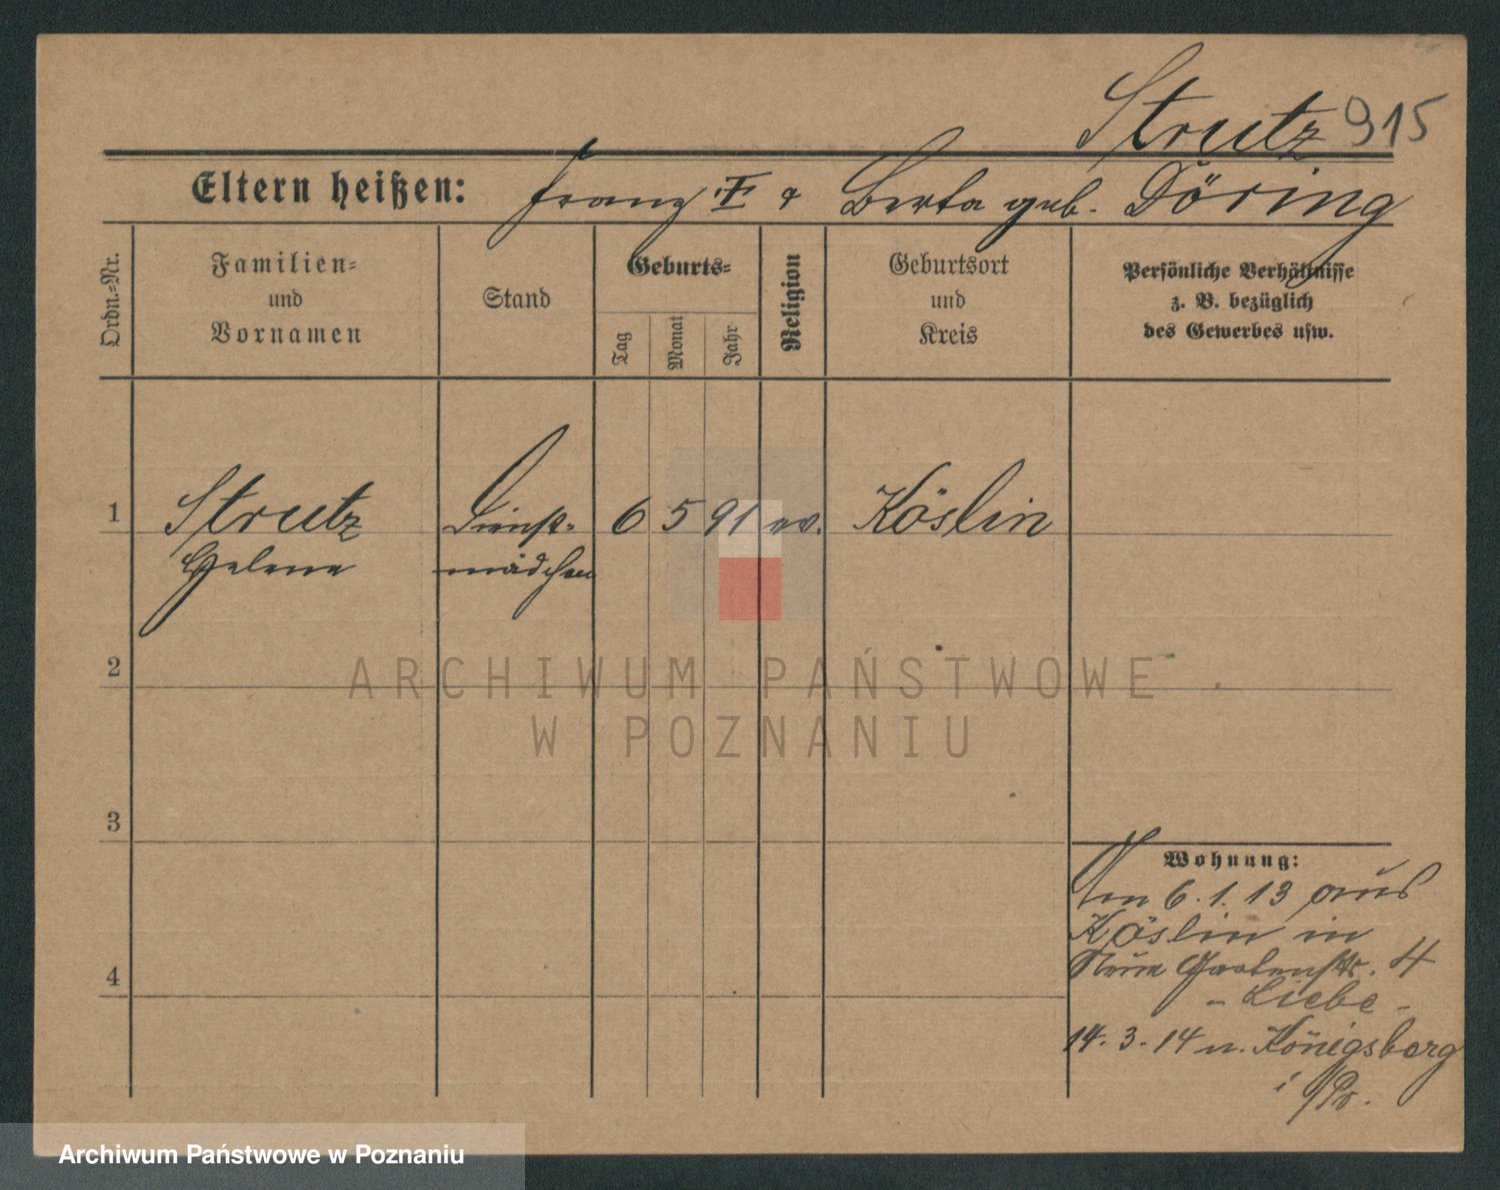 Strutz 915
Eltern heißen: Franz F & Berta geb. Döring
Ordn.-Nr.
Familien-
und
Vornamen
Stand
Geburts-
Tag
Monat
Jahr
Religion
Geburtsort
und
Kreis
Persönliche Verhältnisse
z. B. bezüglich
des Gewerbes usw.
1 Strutz Dienst- 6 5 91 ev. Köslin
Helene mädchen
2
3
4
Wohnung:
Am 6.1.13 aus
Köslin in
Neue Gartenstr. 4
- Liebe -
14.3.14 n. Königsberg
i/Pr.
ARCHIWUM PAŃSTWOWE
W POZNANIU
Archiwum Państwowe w Poznaniu